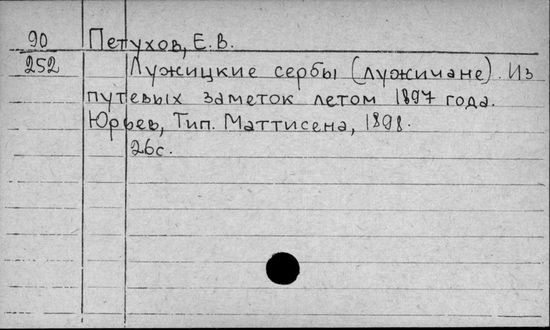 90 Петухов, Е. В.
252 Лужицкие сербы (лужичане). Из
путевых заметок летом 1897 года.
Юрьев, Тип. Маттисена, 1898.
26с.